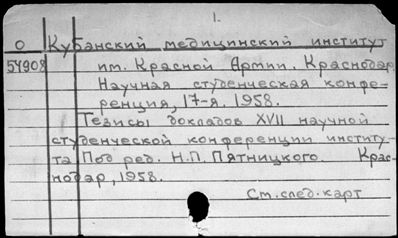 1.
О Кубанский медицинский институт
54908 им. Красной Армии. Краснодар
Научная студенческая конфе-
ренция, 17-я. 1958.
Тезисы докладов XVII научной
студенческой конференции институ-
та Под ред. Н.П. Пятницкого. Крас-
нодар, 1958.
См. след. карт